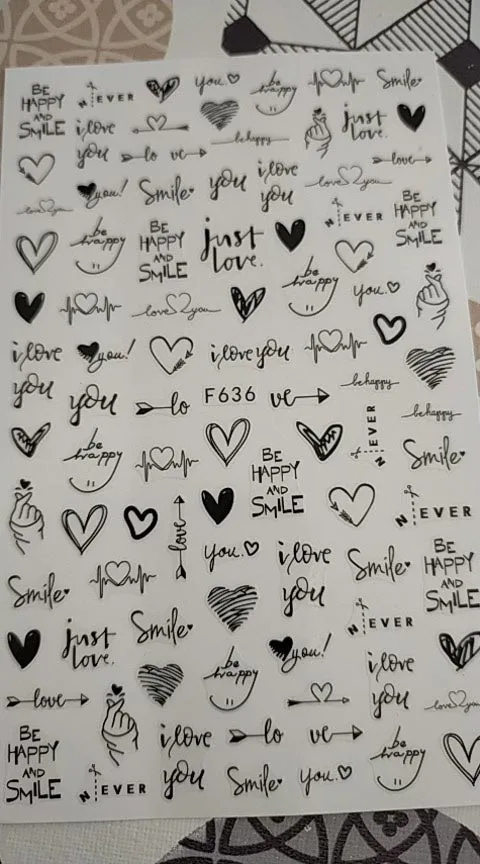 BE
HAPPY
AND
SMILE
NEVER
you
be
happy
Smile
i love
you
be happy
just
love.
lo ve
love
you!
Smile
you
i love
you
love you
love you
NEVER
BE
HAPPY
AND
SMILE
be
happy
BE
HAPPY
AND
SMILE
just
love.
be
happy
you
love you
i love
you
you!
i love you
be happy
you
lo F636 ve
be happy
be
happy
NEVER
Smile
BE
HAPPY
AND
SMILE
love
NEVER
you
i love
you
Smile
BE
HAPPY
AND
SMILE
Smile
just
love.
Smile
NEVER
you!
be
happy
i love
you
love
love you
BE
HAPPY
AND
SMILE
i love
you
lo ve
be
happy
NEVER
Smile
you